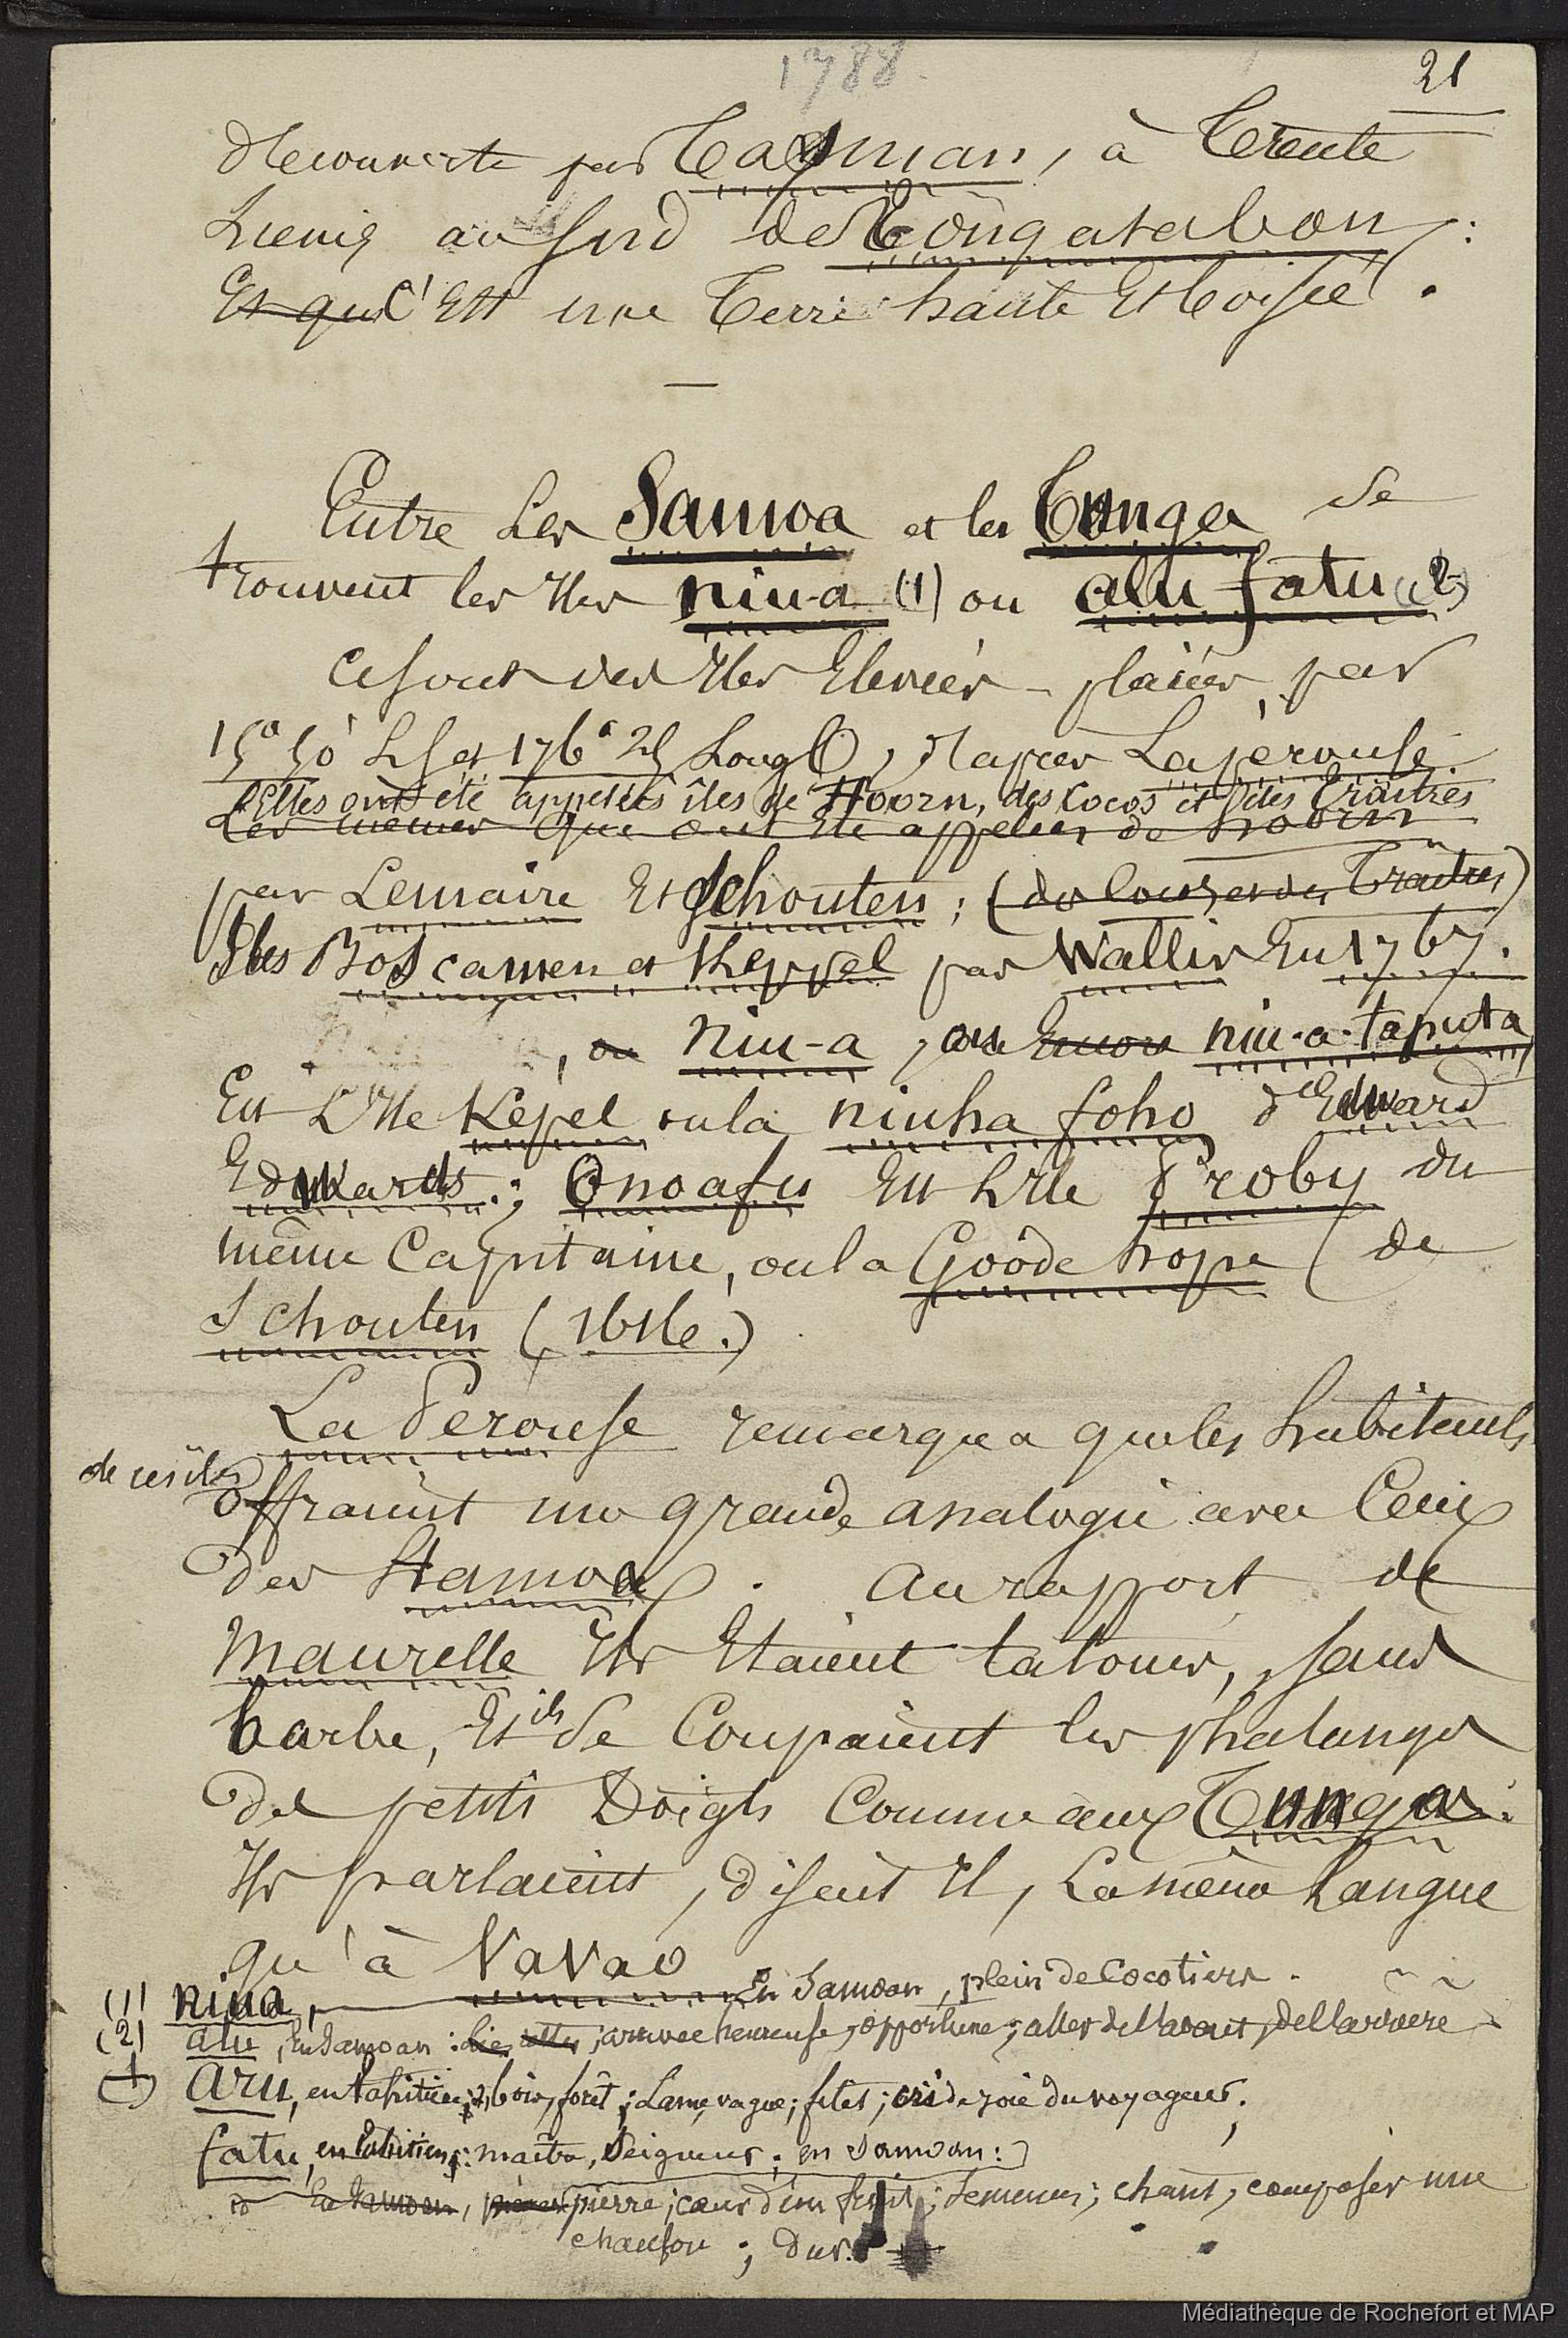 1788
21
découverte par Tasman, à Trente
Lieues au sud de Tongatabou :
Et que C'Est une Terre haute Et boisée.
—
Entre Les Samoa et les Tunga se
trouvent les Iles niu-a (1) ou alu fatu (2)
ce sont des Iles Elevées placées par
15° 50' LS et 176° 25 Long O, d'après Lapérouse.
Elles ont été appelées îles de Hoorn, des Cocos et des Traitres
Les mêmes que ont été appelées de hoorn
par Lemaire Et Schouten ; (des Cocos et des Traitres)
Iles Boscawen et Keppel par Wallis En 1767.
, ou niu-a , ou Encore niu-a-taputa
Est L'Ile Kepel ou la niuha foho d'Edward
Edwards. ; Onoafu Est L'Ile Proby du
même Capitaine, ou la Goôde hope (de
Schouten (1616.)
La Perouse remarqua que les habitants
de ces iles
offraient une grande analogie avec Ceux
des Samoa . au rapport de
Maurelle Ils Etaient tatoués, sans
barbe, Et ils se Coupaient les phalanges
des petits Doigts Comme aux Tunga.
Ils parlaient, disent Il, La même Langue
qu'à Vavao
(1) niua, En Samoan, plein de Cocotiers.
(2) alu, En Samoan : arrivée heureuse, opportune ; aller de l'avant, de l'arrière
(+) aru, en tahitien, bois, forêt ; Lame, vague ; filet ; cri de joie du voyageur ;
fatu, en tahitien : maître, Seigneur ; en Samoan :
id En Samoan, pierre ; cœur d'un fruit ; semences ; chant, composer une
chanson ; dur.
Médiathèque de Rochefort et MAP